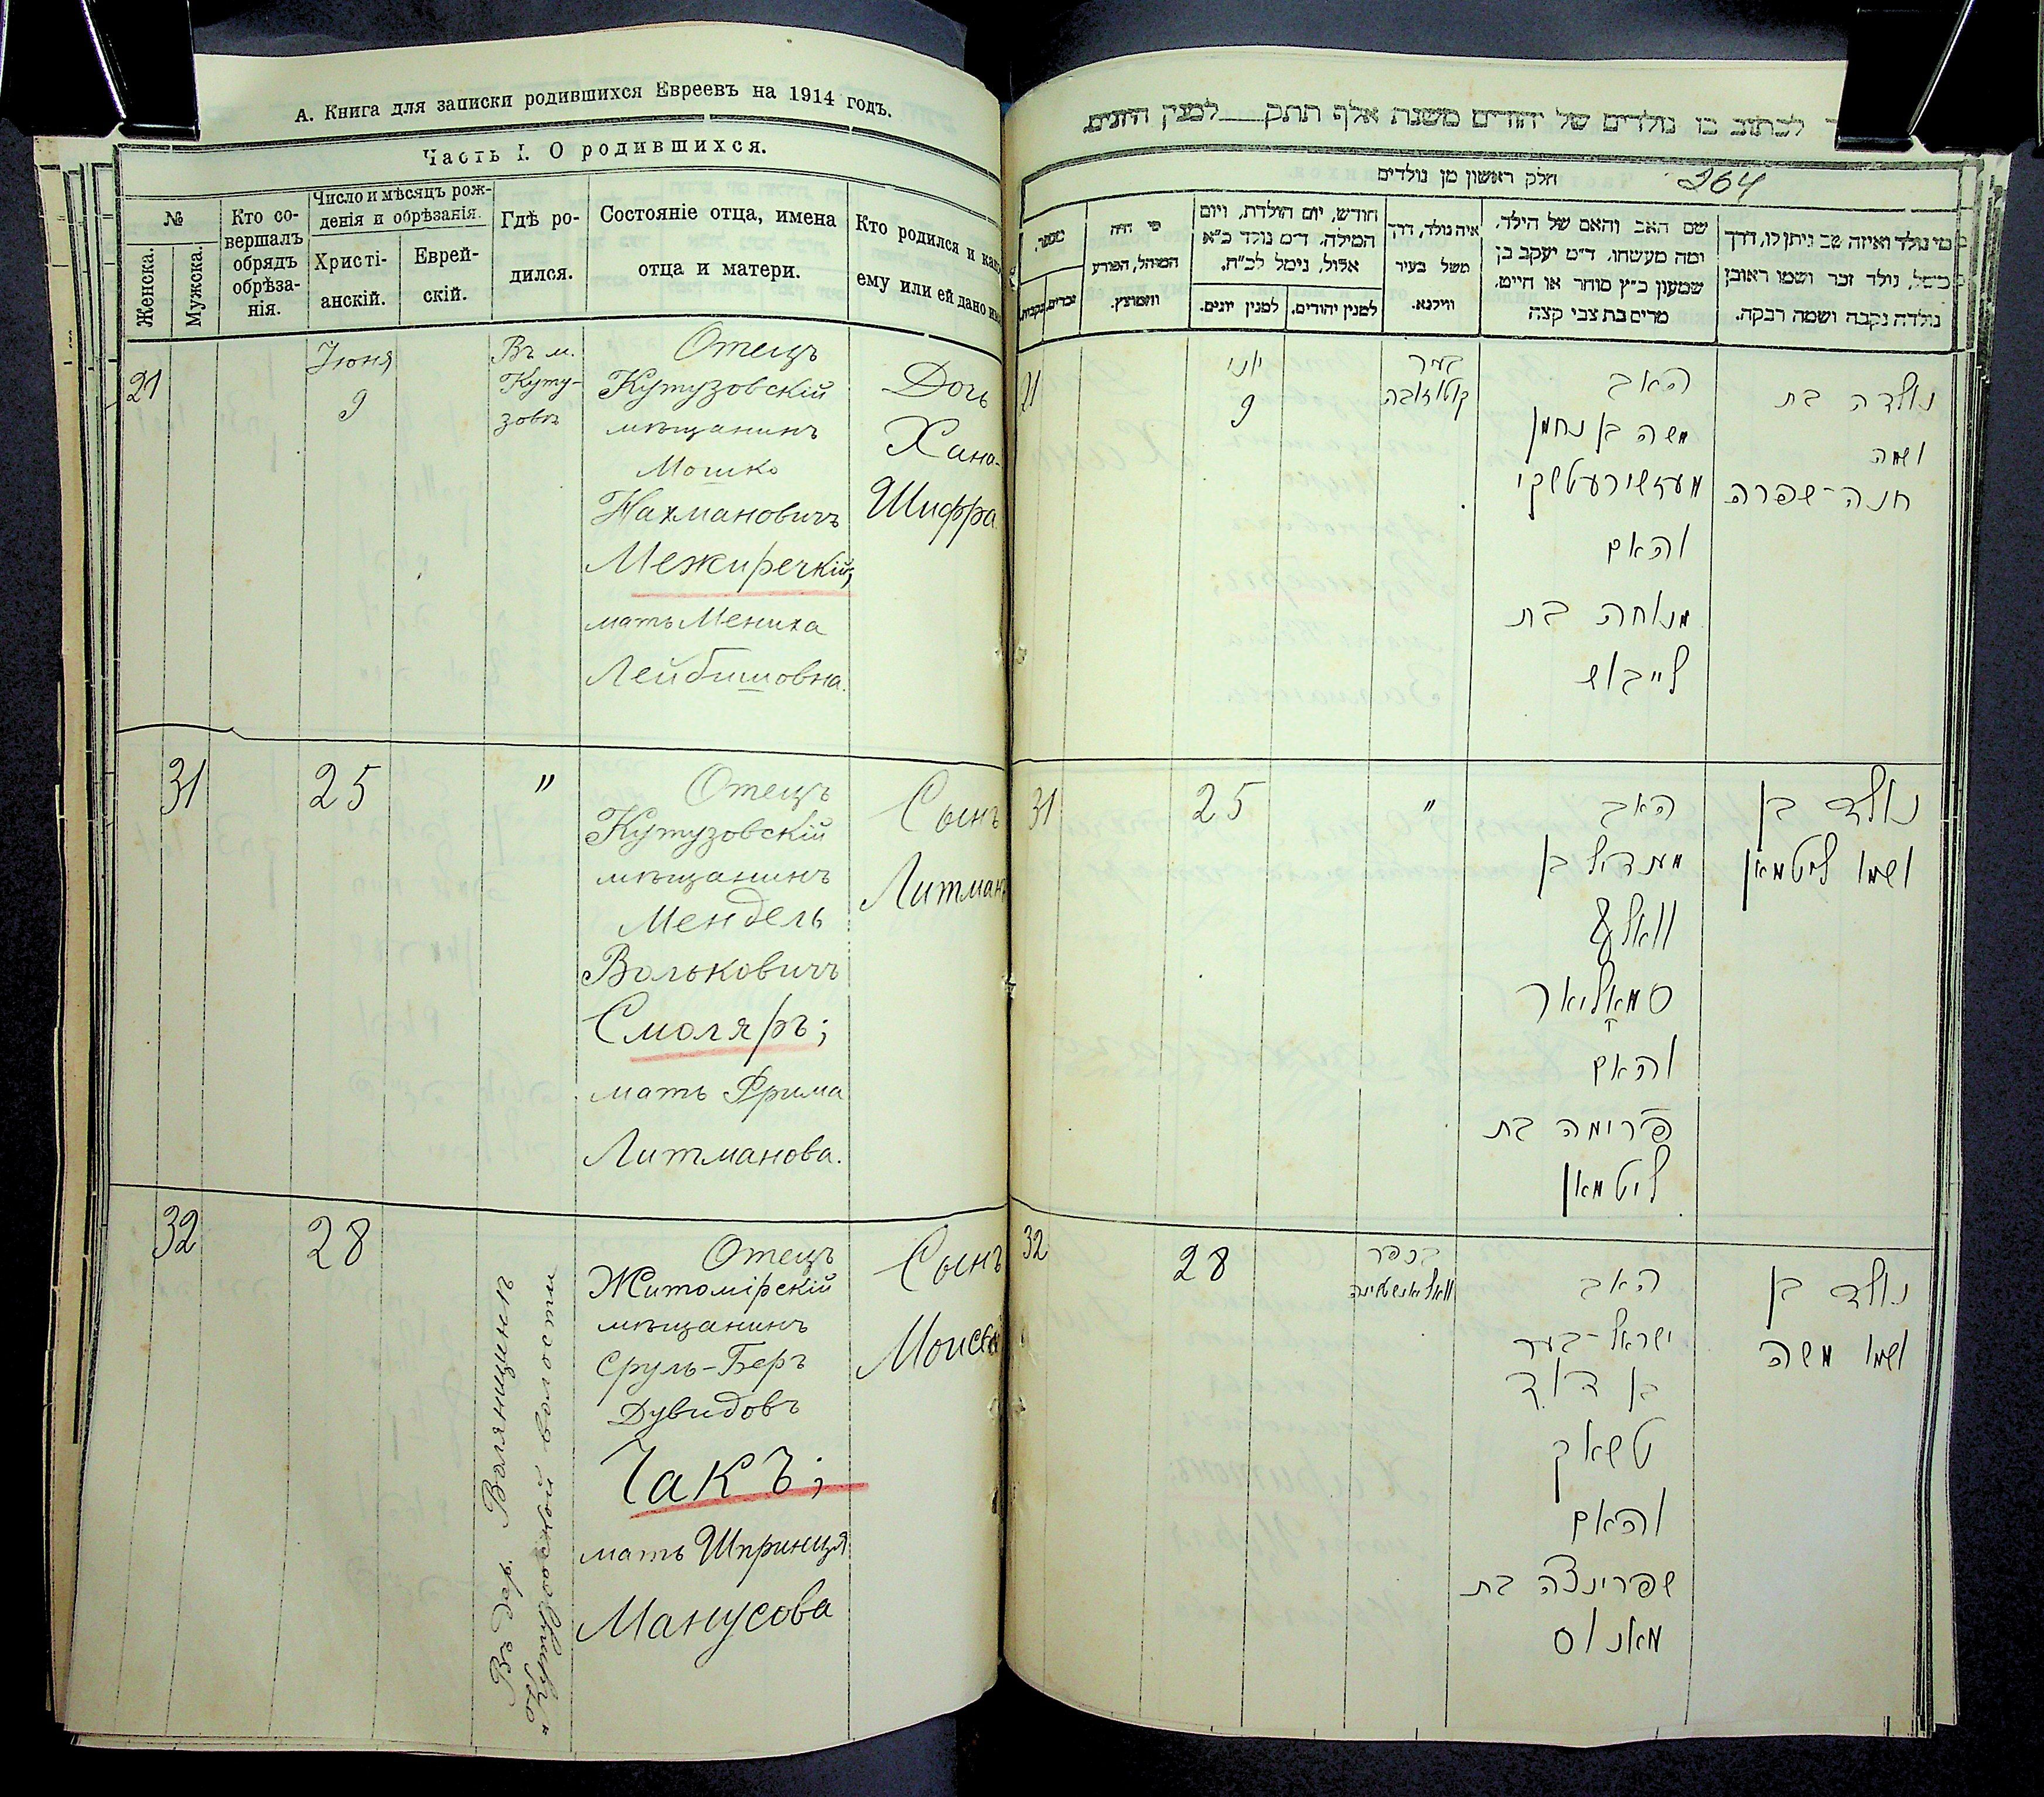 А. Книга для записки родившихся Евреевъ на 1914 годъ.
Часть I. О родившихся.
№
Женска.
Мужска.
Кто со-
вершалъ
обрядъ
обрѣза-
нія.
Число и мѣсяцъ рож-
денія и обрѣзанія.
Христі-
анскій.
Еврей-
скій.
Гдѣ ро-
дился.
Состояніе отца, имена
отца и матери.
Кто родился и какое
ему или ей дано имя
21
Іюня
9
Въ м.
Куту-
зовѣ
Отецъ
Кутузовскій
мѣщанинъ
Мошко
Нахмановичъ
Межиречкій;
мать Мениха
Лейбишовна.
Дочь
Хана-
Шифра
31
25
"
Отецъ
Кутузовскій
мѣщанинъ
Мендель
Вольковичъ
Смоляръ;
мать Фрима
Литманова.
Сынъ
Литманъ
32
28
Въ дер. Волянщинѣ
Кутузовской волости
Отецъ
Житомірскій
мѣщанинъ
Сруль-Беръ
Дувидовъ
Чакъ;
мать Шпринця
Манусова
Сынъ
Моисей
לכתוב בו נולדים של יהודים משנת אלף תתק למנין היונים
חלק ראשון מן נולדים
264
מי נולד ואיזה שם ניתן לו, דרך
משל, נולד זכר ושמו ראובן
נולדה נקבה ושמה רבקה.
שם האב והאם של הילד,
ומה מעשהו, ד"מ יעקב בן
שמעון כ"ץ סוחר או חייט,
מרים בת צבי קצה
איה נולד, דרך
משל בעיר
ווילנא.
חודש, יום הולדת, ויום
המילה, ד"מ נולד כ"א
אלול, נימל לכ"ח.
למנין יהודים.
למנין יונים.
מי היה
המוהל, הפורע
והמוצץ.
מספר.
זכרים.
נקבות.
21
יוני
9
בעיר
קוטוזובה
האב
משה בן נחמן
מעזשירעטשקי
והאם
מנוחה בת
לייבוש
נולדה בת
ושמה
חנה-שפרה
31
25
"
האב
מענדיל בן
וואלף
סמאליאר
והאם
פרימה בת
ליטמאן
נולד בן
ושמו ליטמאן
32
28
בכפר
וואליאנשטינה
האב
ישראל-בער
בן דוד
טשאק
והאם
שפרינצה בת
מאנוס
נולד בן
ושמו משה